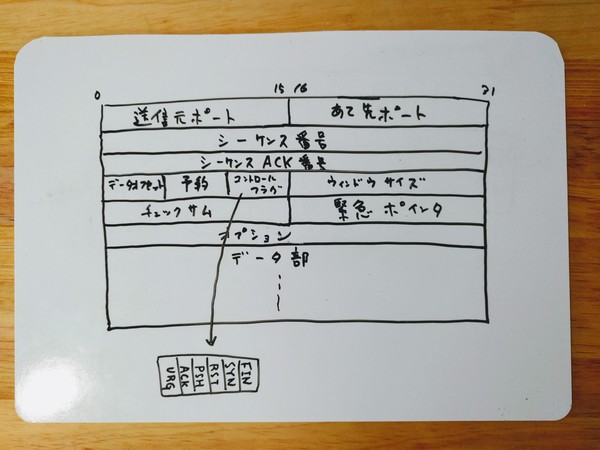 0 15 16 31
送信元ポート あて先ポート
シーケンス番号
シーケンス ACK 番号
データオフセット 予約 コントロール ウィンドウ サイズ
フラグ
チェックサム 緊急 ポインタ
オプション
データ部
URG ACK PSH RST SYN FIN